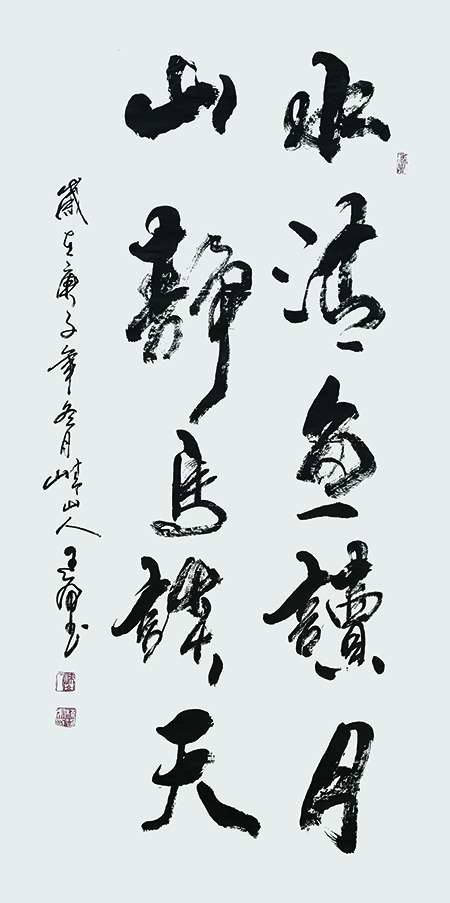 水清魚讀月
山靜鳥談天
歲在庚子年冬月山人王書